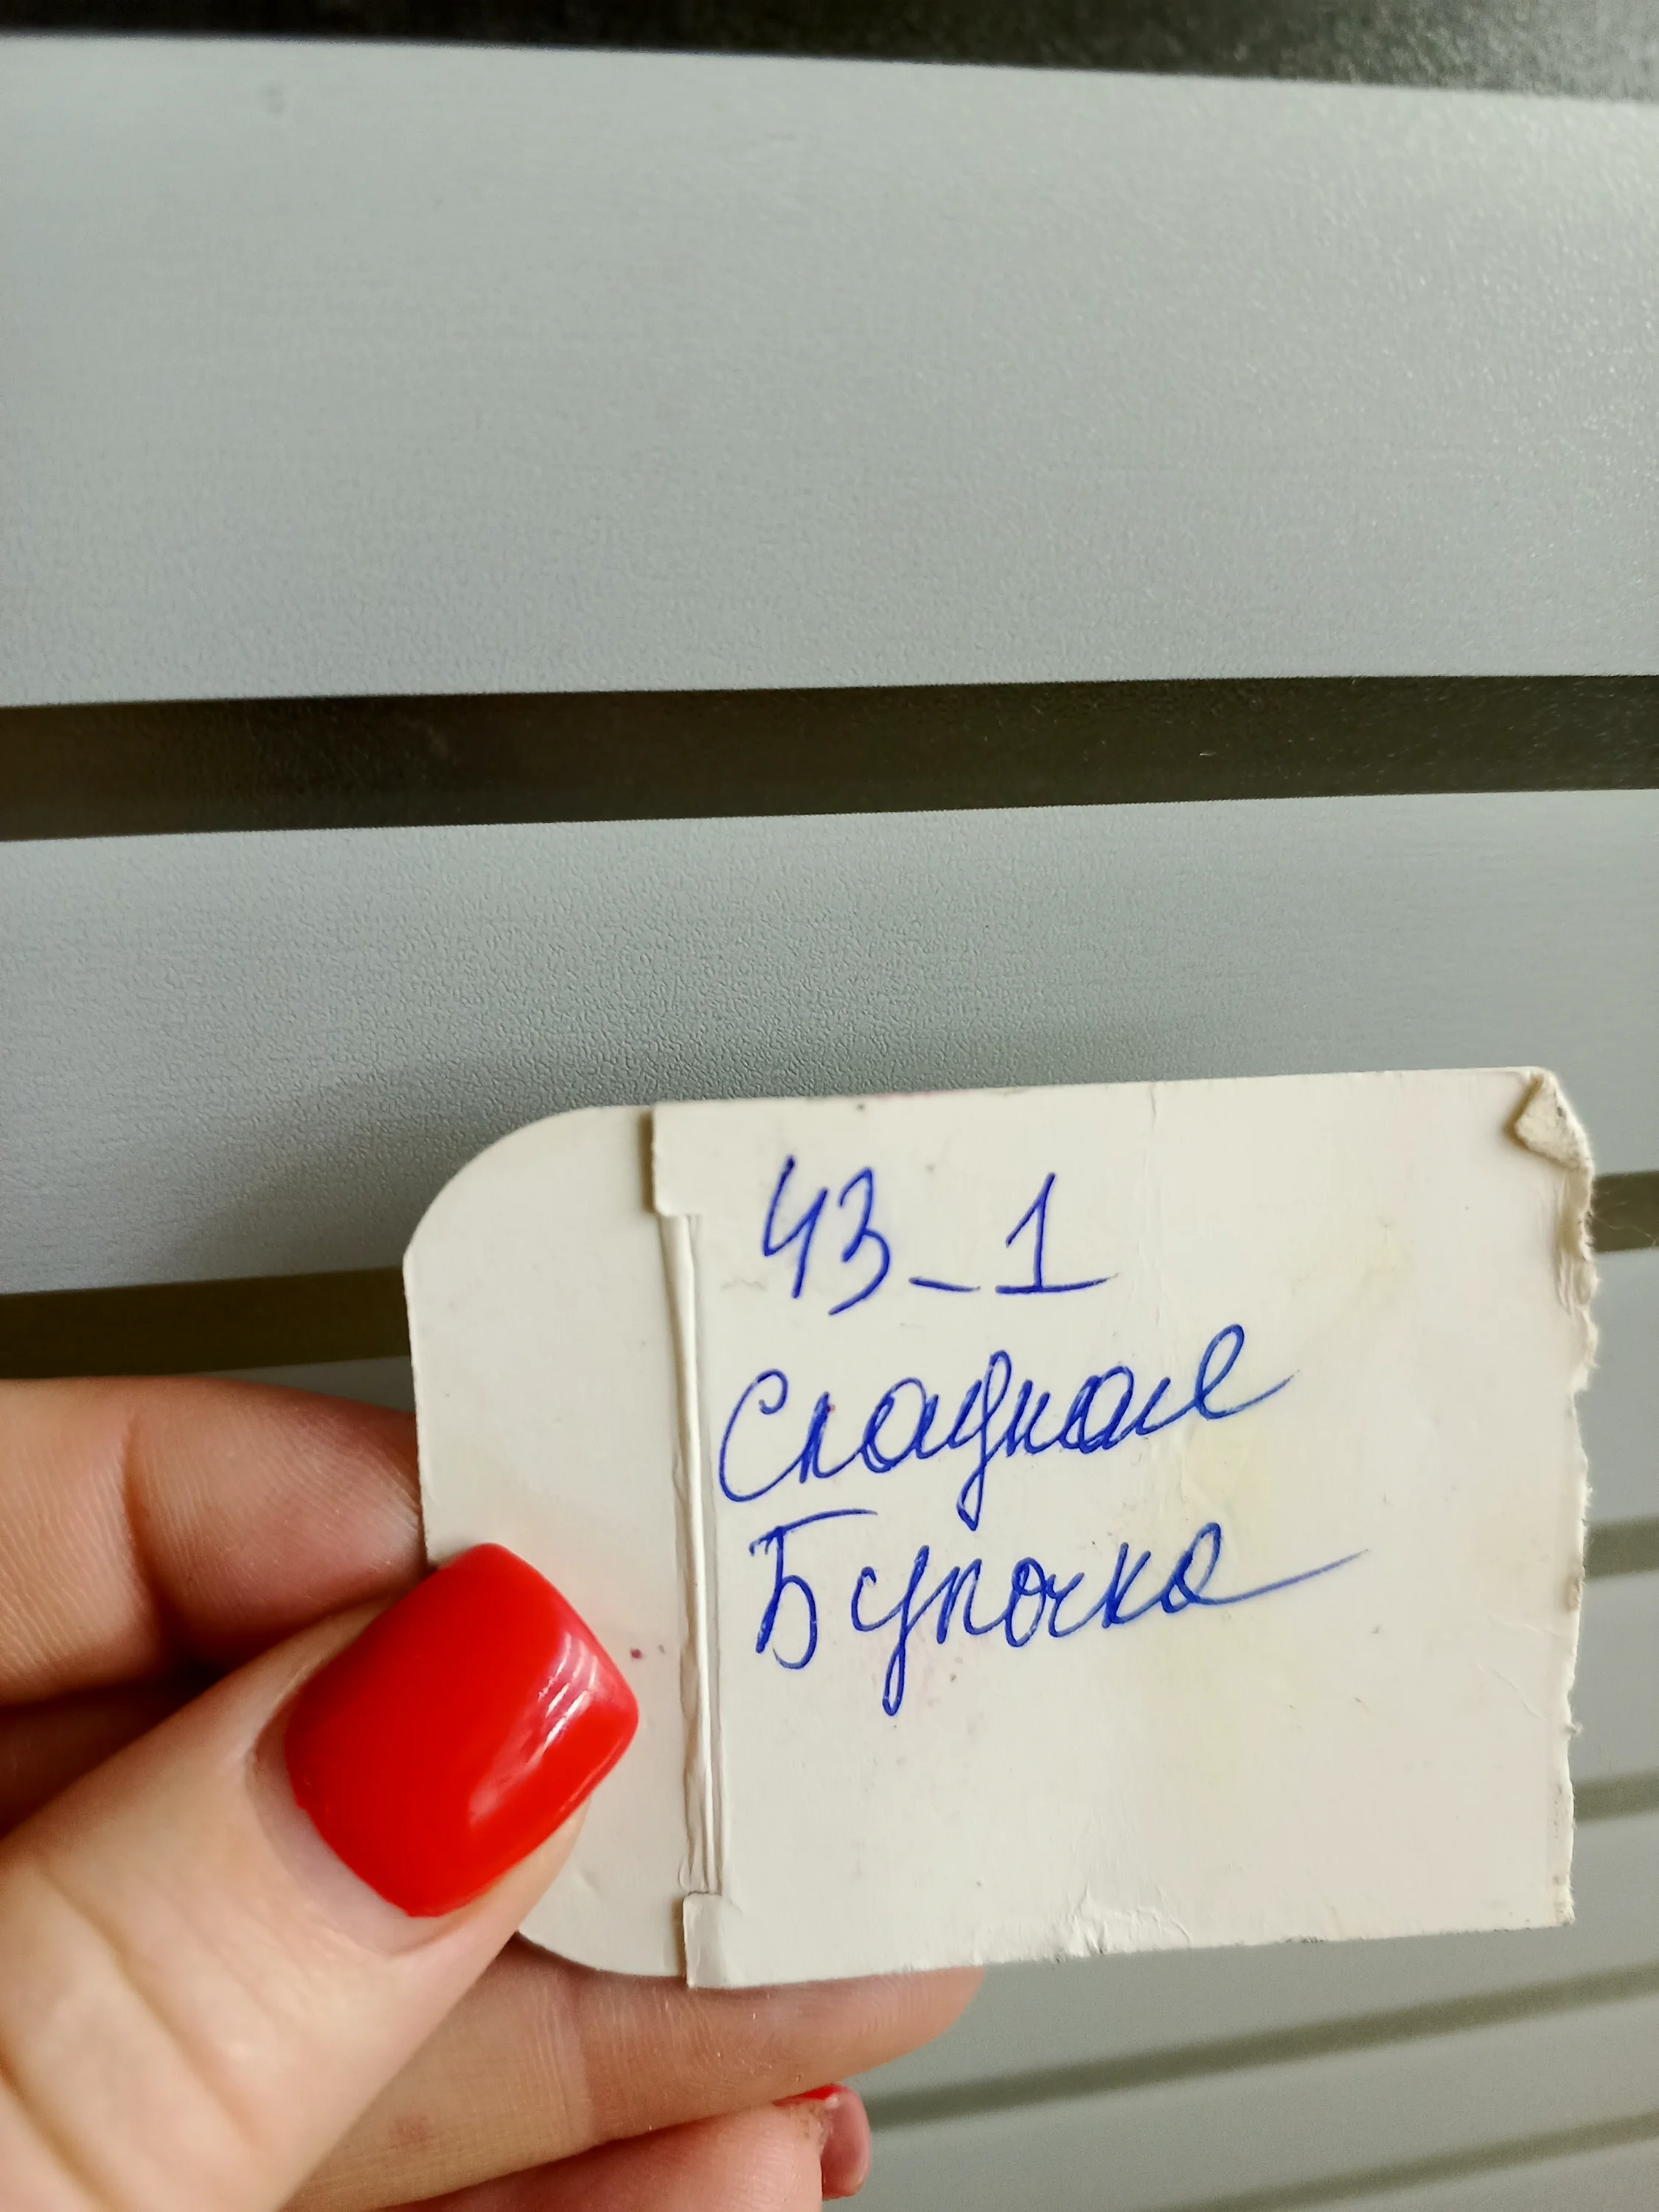 43_1
Сладкая
Булочка